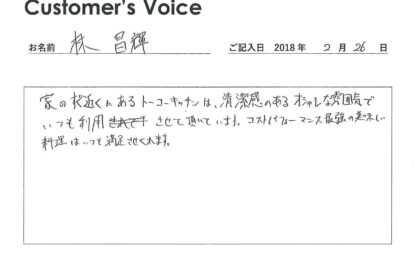 Customer's Voice
お名前 林 昌輝 ご記入日 2018年 2月 26日
家の択近くにあるトーコーキッチンは、清潔感のあるオシャレな雰囲気で
いつも利用されて让させて頂いています。コストパフォーマンス最強の美味しい
料理はいつも満足させてくれます。